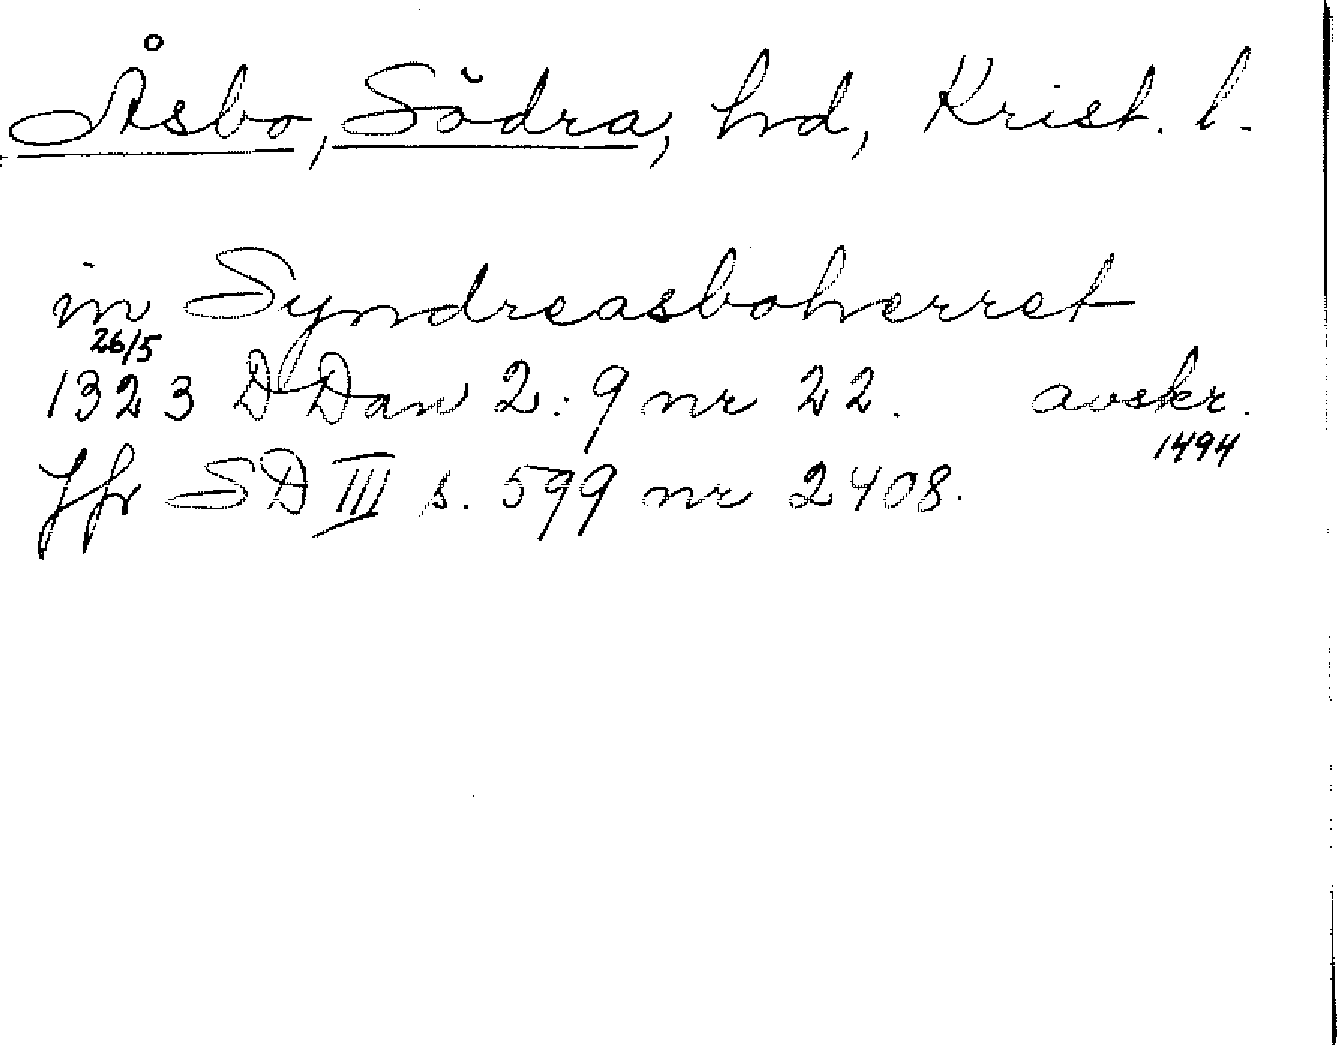 Åsbo, Södra, hd, Krist. l.
in Syndreasboherret
26/5
1323 DDan 2:9 nr 22. avskr.
1494
Jfr SD III s. 599 nr 2408.